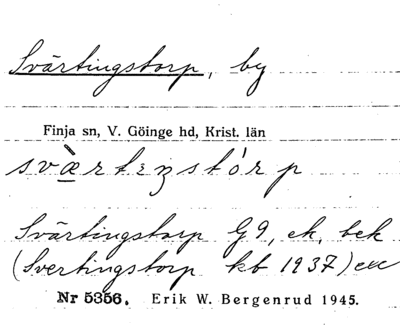 Svärtingstorp, by
Finja sn, V. Göinge hd, Krist. län
svæ̀rtɩŋstȯ́rp
Svärtingstorp G9, ek, bek
(Svertingstorp kb 1937) exc
Nr 5356. Erik W. Bergenrud 1945.